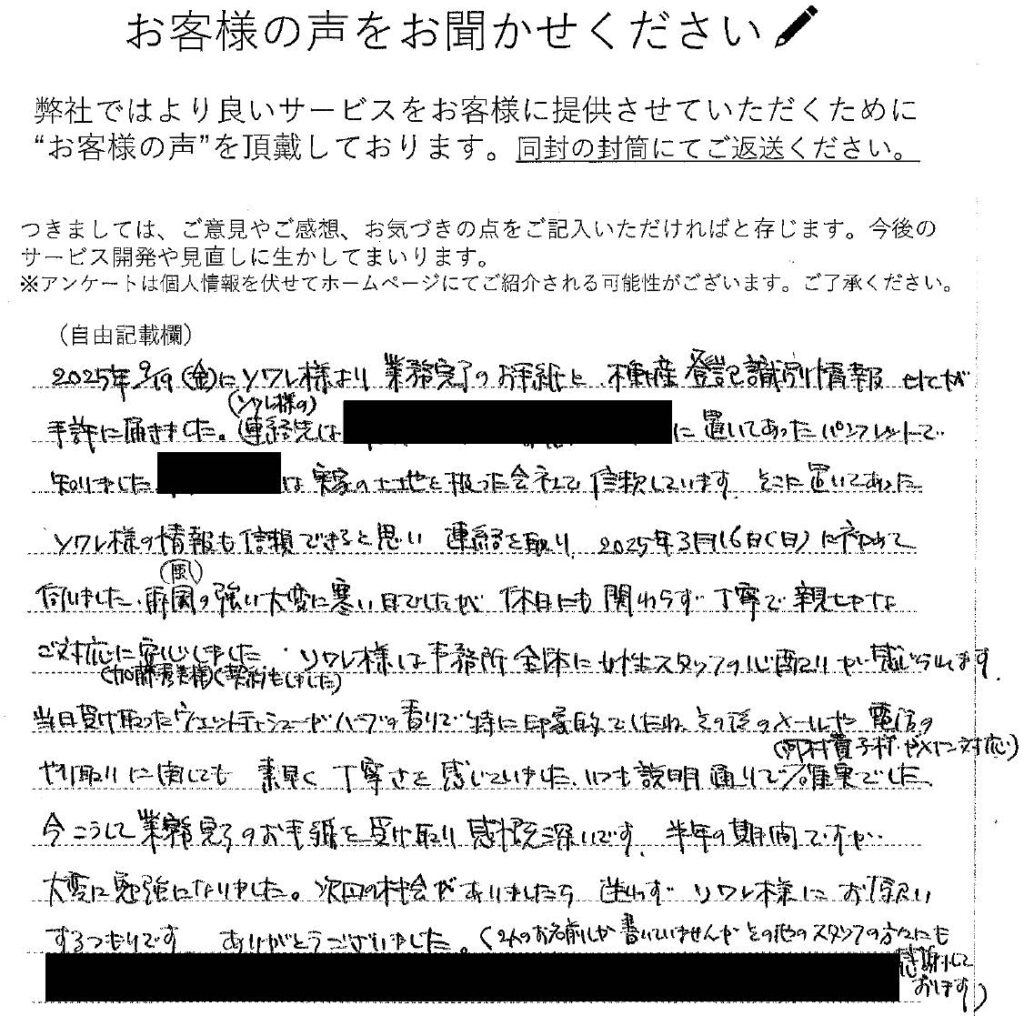 お客様の声をお聞かせください
弊社ではより良いサービスをお客様に提供させていただくために
“お客様の声”を頂戴しております。同封の封筒にてご返送ください。
つきましては、ご意見やご感想、お気づきの点をご記入いただければと存じます。今後の
サービス開発や見直しに生かしてまいります。
※アンケートは個人情報を伏せてホームページにてご紹介される可能性がございます。ご了承ください。
(自由記載欄)
2025年9/19(金)にソワレ様より 業務完了のお手紙と 不動産登記識別情報 せてが
(ソワレ様の)
手許に届きました。連絡先は に置いてあったパンフレットで
知りました は実家の土地を扱った会社で信頼しています。そこに置いてあった
ソワレ様の情報も信頼できると思い 連絡を取り、2025年3月16日(日)に初めて
(風)
伺いました。雨風の強い大変に寒い日でしたが 休日にも関わらず丁寧で親切な
ご対応に安心しました。ソワレ様は事務所全体に女性スタッフの心配りが感じられます。
(契約もしました)
当日受け取った のハーブの香りで特に印象的でしたね。その後のメールや電話の
(河村貴子様 対応)
やり取りに関しても 素早く丁寧さを感じていました。いつも説明通りで確実でした。
今こうして業務完了のお手紙を受け取り感慨深いです。半年の期間ですが
大変に勉強になりました。次回の機会がありましたら 迷わずソワレ様にお願い
するつもりです ありがとうございました。(2人のお名前しか書いていませんが その他のスタッフの方々にも
感謝して
おります)